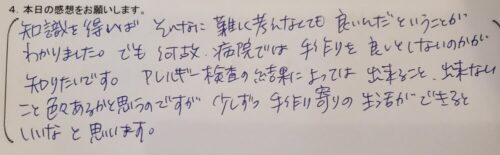 4. 本日の感想をお願いします。
知識を得れば そんなに難しく考えなくても 良いんだということが
わかりました。でも 何故、病院では 手作りを 良しとしないのかが
知りたいです。アレルギー検査の結果によっては 出来ること、出来ない
こと 色々あるかと思うのですが 少しずつ 手作り寄りの 生活ができると
いいな と思います。